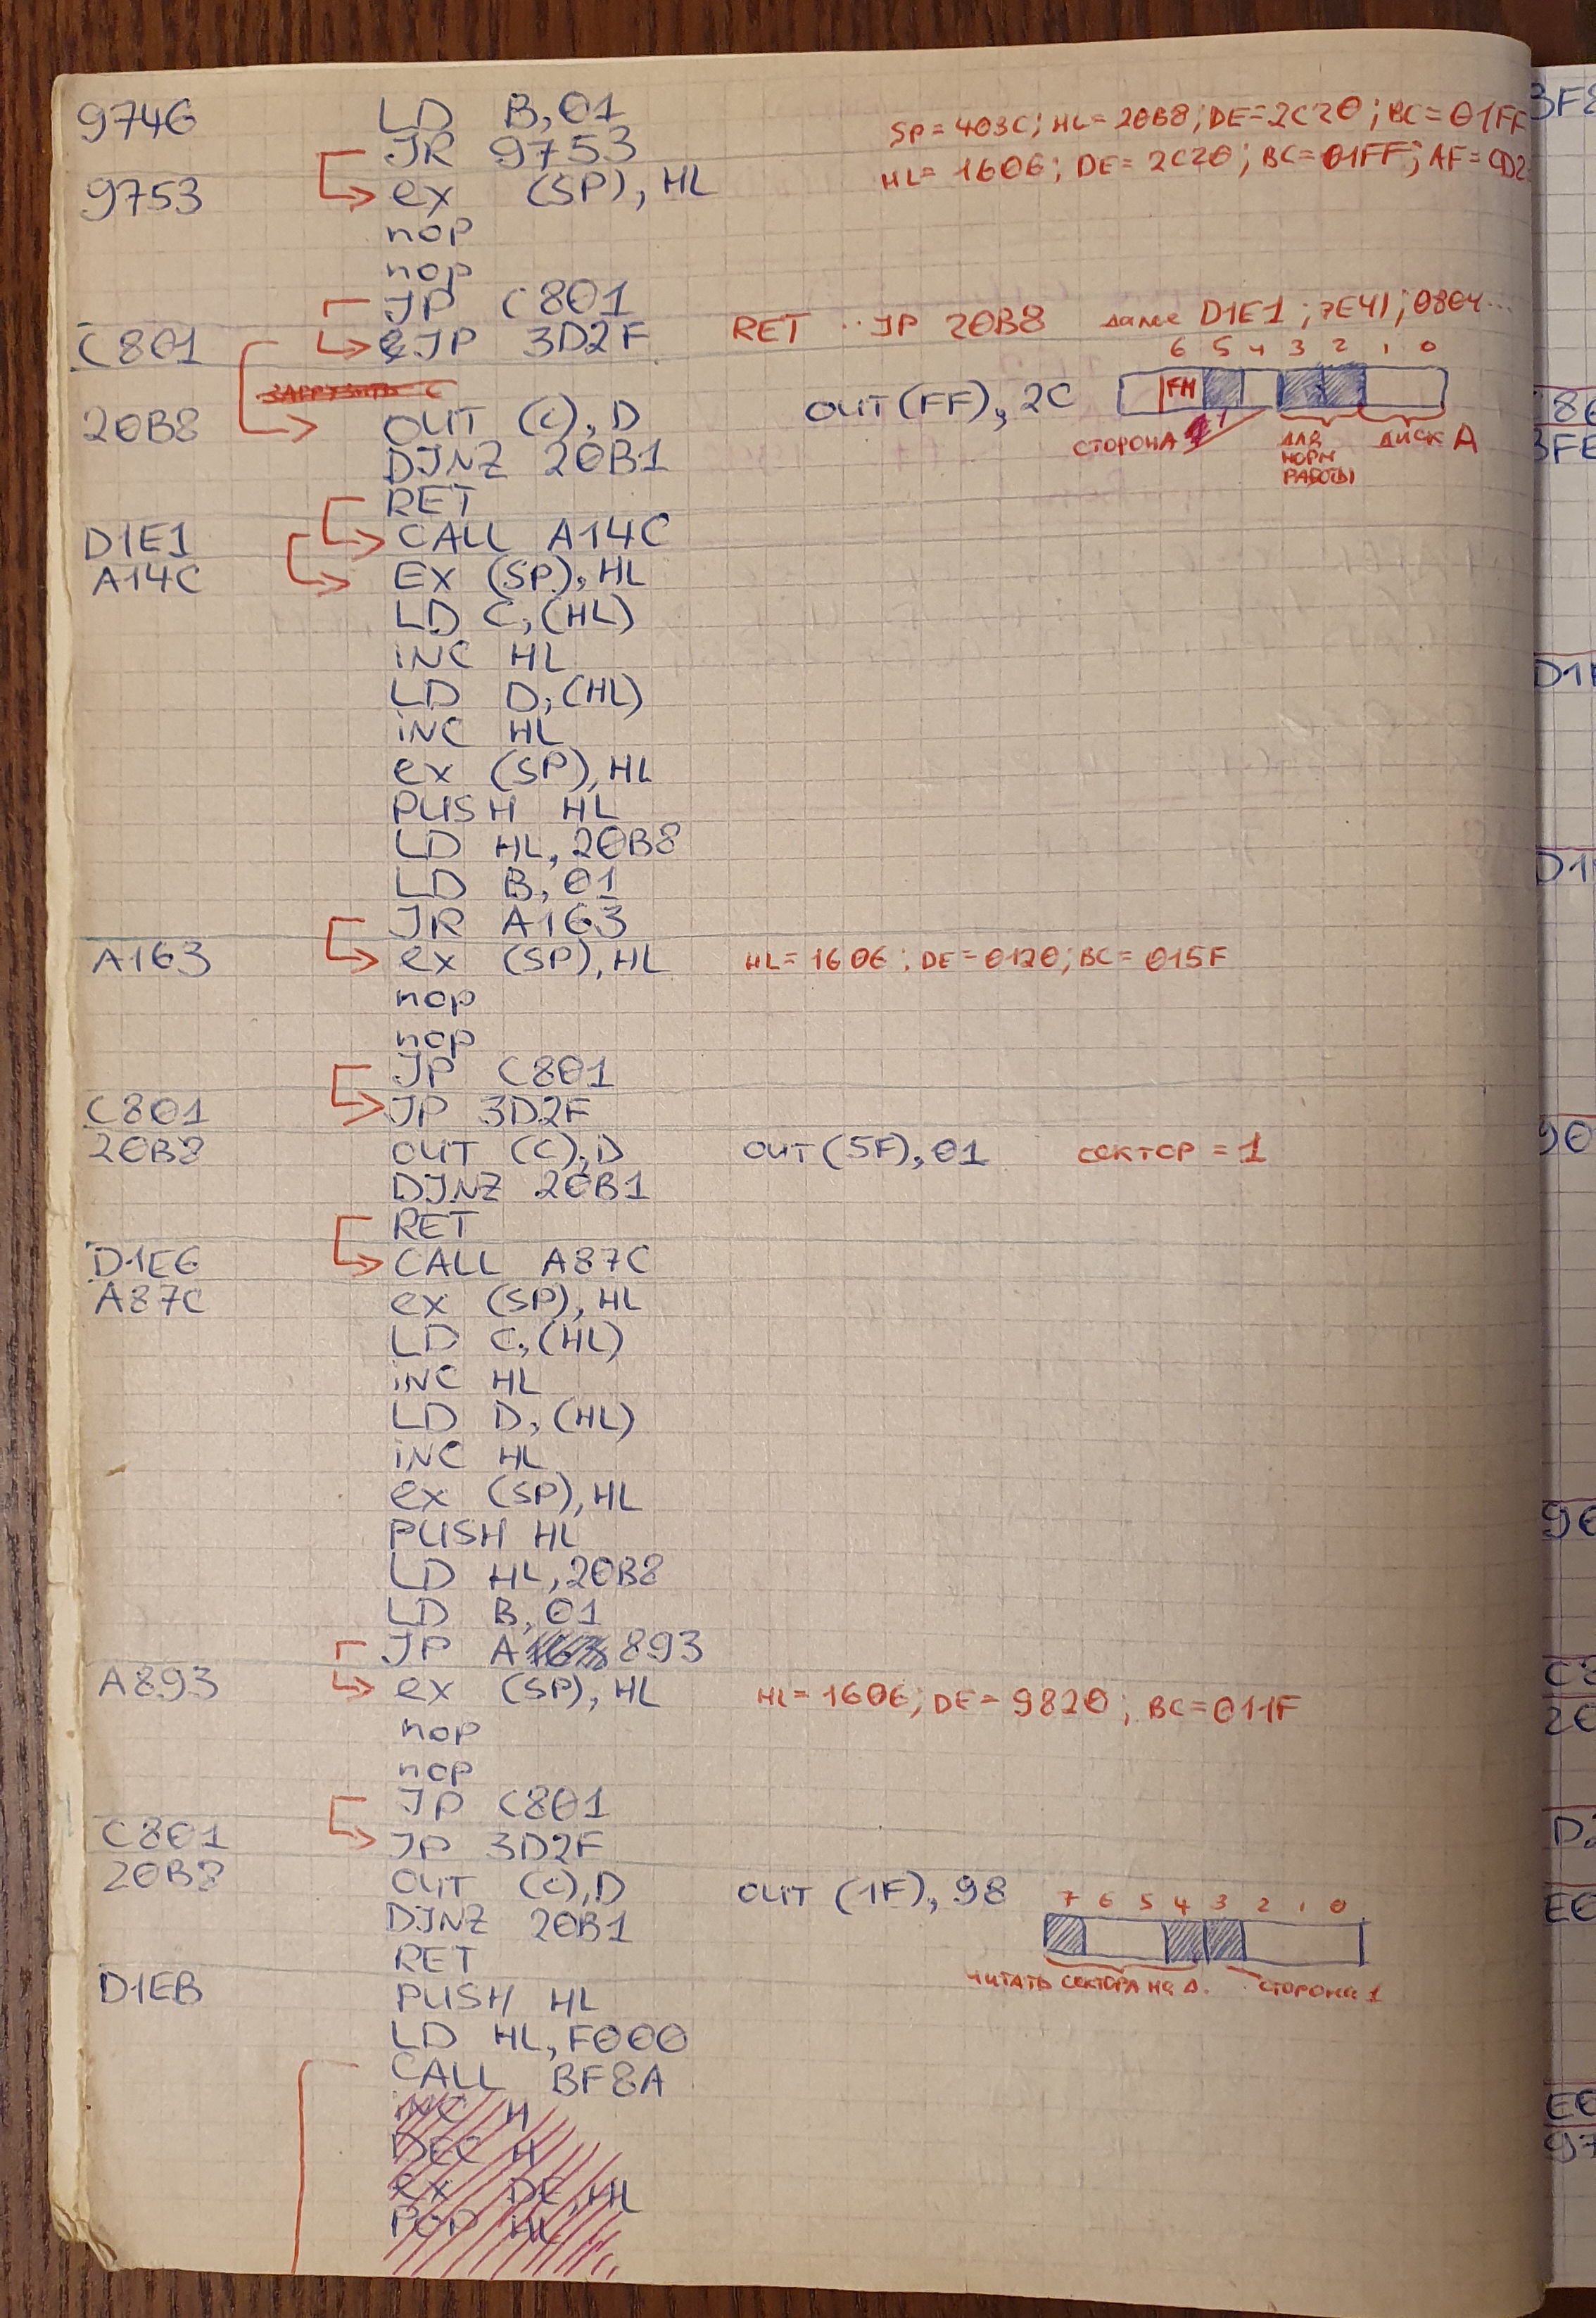 9746 LD B,01
JR 9753 SP=403C; HL=20B8; DE=2C20; BC=01FF
9753 ex (SP), HL HL=1606; DE=2C20; BC=01FF; AF=
nop
nop
JP C801
C801 JP 3D2F RET JP 20B8 далее D1E1; 7E41; 0804...
6 5 4 3 2 1 0
FM
20B8 OUT (C), D OUT(FF), 2C
СТОРОНА ДЛЯ НОРМ РАБОТЫ ДИСК A
DJNZ 20B1
RET
D1E1 CALL A14C
A14C Ex (SP), HL
LD C,(HL)
INC HL
LD D,(HL)
INC HL
ex (SP), HL
PUSH HL
LD HL, 20B8
LD B, 01
JR A163
A163 ex (SP), HL HL=1606; DE=0120; BC=015F
nop
nop
JP C801
C801 JP 3D2F
20B8 OUT (C), D OUT(5F), 01 сектор = 1
DJNZ 20B1
RET
D1E6 CALL A87C
A87C ex (SP), HL
LD C,(HL)
INC HL
LD D,(HL)
INC HL
ex (SP), HL
PUSH HL
LD HL, 20B8
LD B, 01
JP A 893
A893 ex (SP), HL HL=1606; DE=9820; BC=011F
nop
nop
JP C801
C801 JP 3D2F
20B8 OUT (C), D OUT (1F), 98
7 6 5 4 3 2 1 0
DJNZ 20B1
RET
ЧИТАТЬ СЕКТОРА НА Д. СТОРОНА 1
D1EB PUSH HL
LD HL, F000
CALL BF8A
INC H
DEC H
ex DE, HL
POP HL